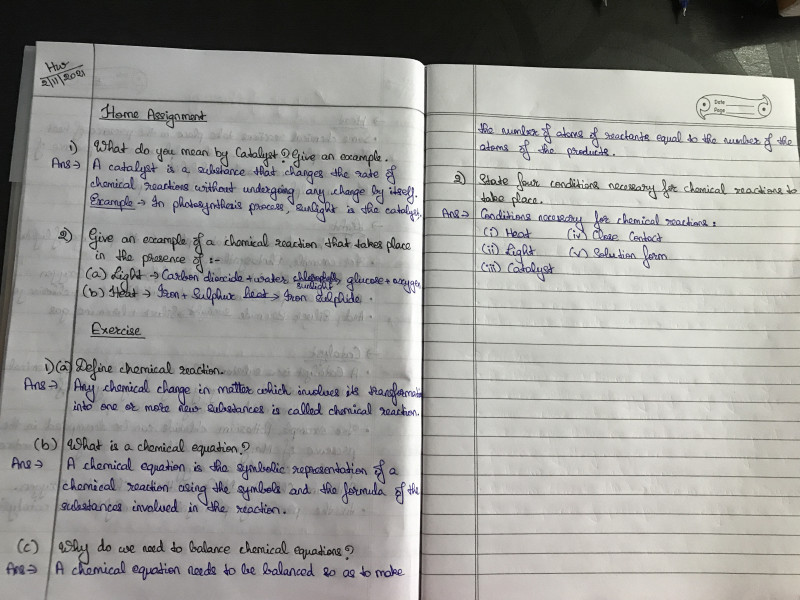 HW
2/11/2021
Home Assignment
1) What do you mean by Catalyst? Give an example.
Ans → A catalyst is a substance that changes the rate of
chemical reactions without undergoing any change by itself.
Example → In photosynthesis process, sunlight is the catalyst.
2) Give an example of a chemical reaction that takes place
in the presence of :-
(a) Light → Carbon dioxide + water chlorophyll sunlight glucose + oxygen
(b) Heat → Iron + Sulphur heat → Iron sulphide.
Exercise
1) (a) Define chemical reaction.
Ans → Any chemical change in matter which involves its transformation
into one or more new substances is called chemical reaction.
(b) What is a chemical equation?
Ans → A chemical equation is the symbolic representation of a
chemical reaction using the symbols and the formula of the
substances involved in the reaction.
(c) Why do we need to balance chemical equations?
Ans → A chemical equation needs to be balanced so as to make
Date
Page
the number of atoms of reactants equal to the number of the
atoms of the products.
2) State four conditions necessary for chemical reactions to
take place.
Ans → Conditions necessary for chemical reactions :
(i) Heat (iv) Close Contact
(ii) Light (v) Solution form
(iii) Catalyst